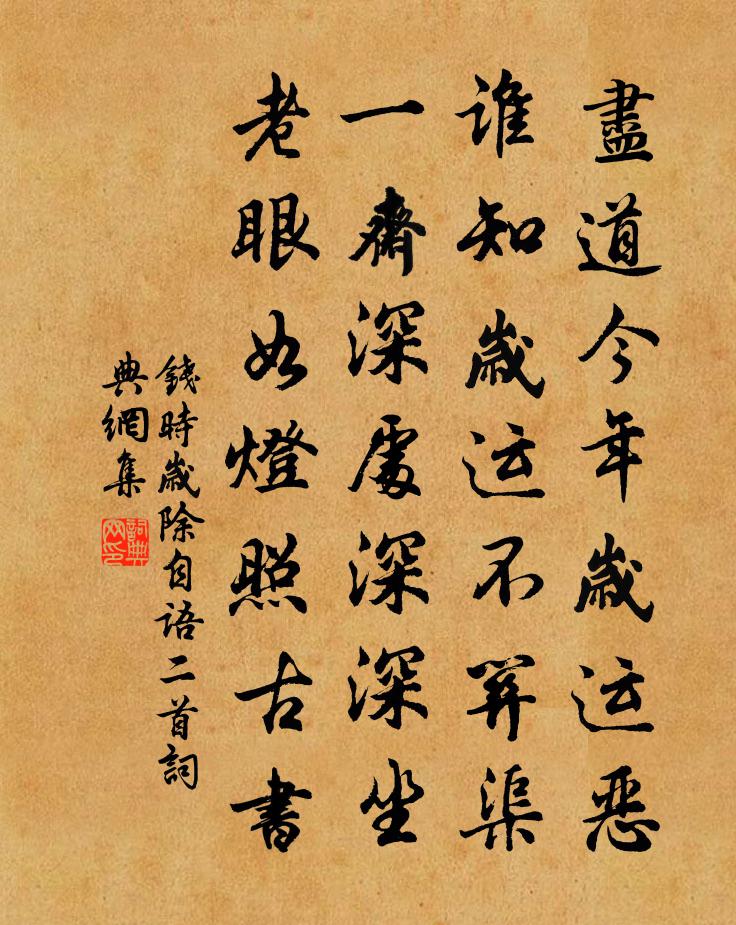 盡道今年歲运恶
谁知歲运不関渠
一齋深處深深坐
老眼如燈照古書
錢時歲除自语二首詞
典網集
詞典网印